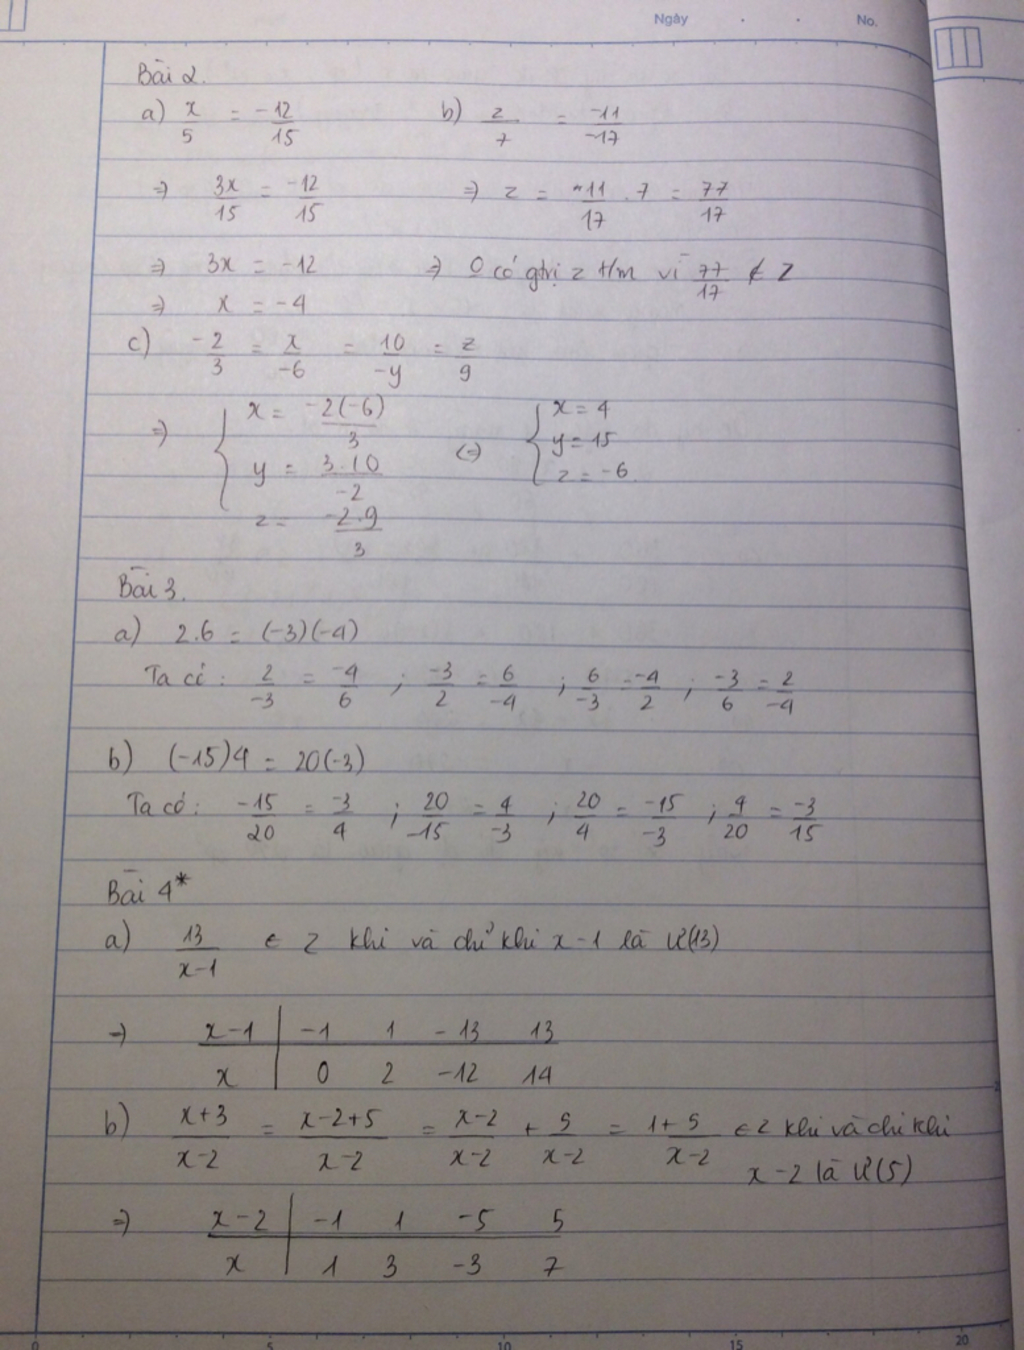 Ngày . . No.
Bài 2.
a) x/5 = -12/15 b) z/7 = -11/-17
=> 3x/15 = -12/15 => z = -11/17 . 7 = 77/17
=> 3x = -12 => 0 có gtrị z t/m vì 77/17 ∉ Z
=> x = -4
c) -2/3 = x/-6 = 10/-y = z/9
=> { x = -2(-6)/3 <=> { x = 4
y = 3.10/-2 y = 15
z = -2.9/3 z = -6.
Bài 3.
a) 2.6 = (-3)(-4)
Ta có : 2/-3 = -4/6 ; -3/2 = 6/-4 ; 6/-3 = -4/2 ; -3/6 = 2/-4
b) (-15)4 = 20(-3)
Ta có : -15/20 = -3/4 ; 20/-15 = 4/-3 ; 20/4 = -15/-3 ; 4/20 = -3/15
Bài 4*
a) 13/x-1 ∈ Z khi và chỉ khi x-1 là Ư(13)
=> x-1 | -1 1 -13 13
x | 0 2 -12 14
b) x+3/x-2 = x-2+5/x-2 = x-2/x-2 + 5/x-2 = 1+5/x-2 ∈ Z khi và chỉ khi
x-2 là Ư(5)
=> x-2 | -1 1 -5 5
x | 1 3 -3 7
0 5 10 15 20